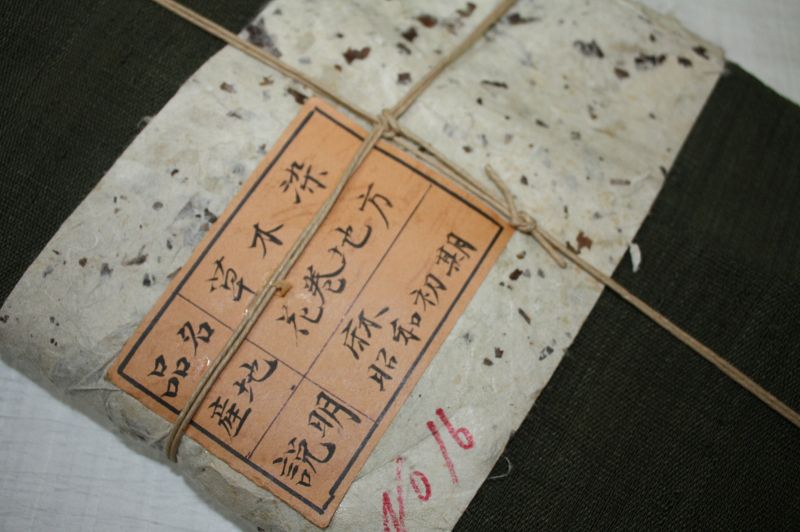 品名 草木染
産地 花巻地方
説明 麻
昭和初期
No 16